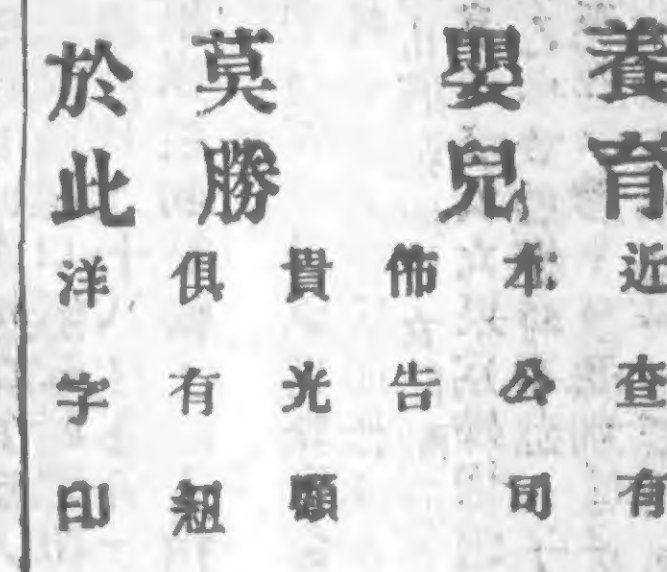 養育
嬰兒
莫勝
於此
近查有
本公司
佈告
貴光顧
俱有紐
洋字印